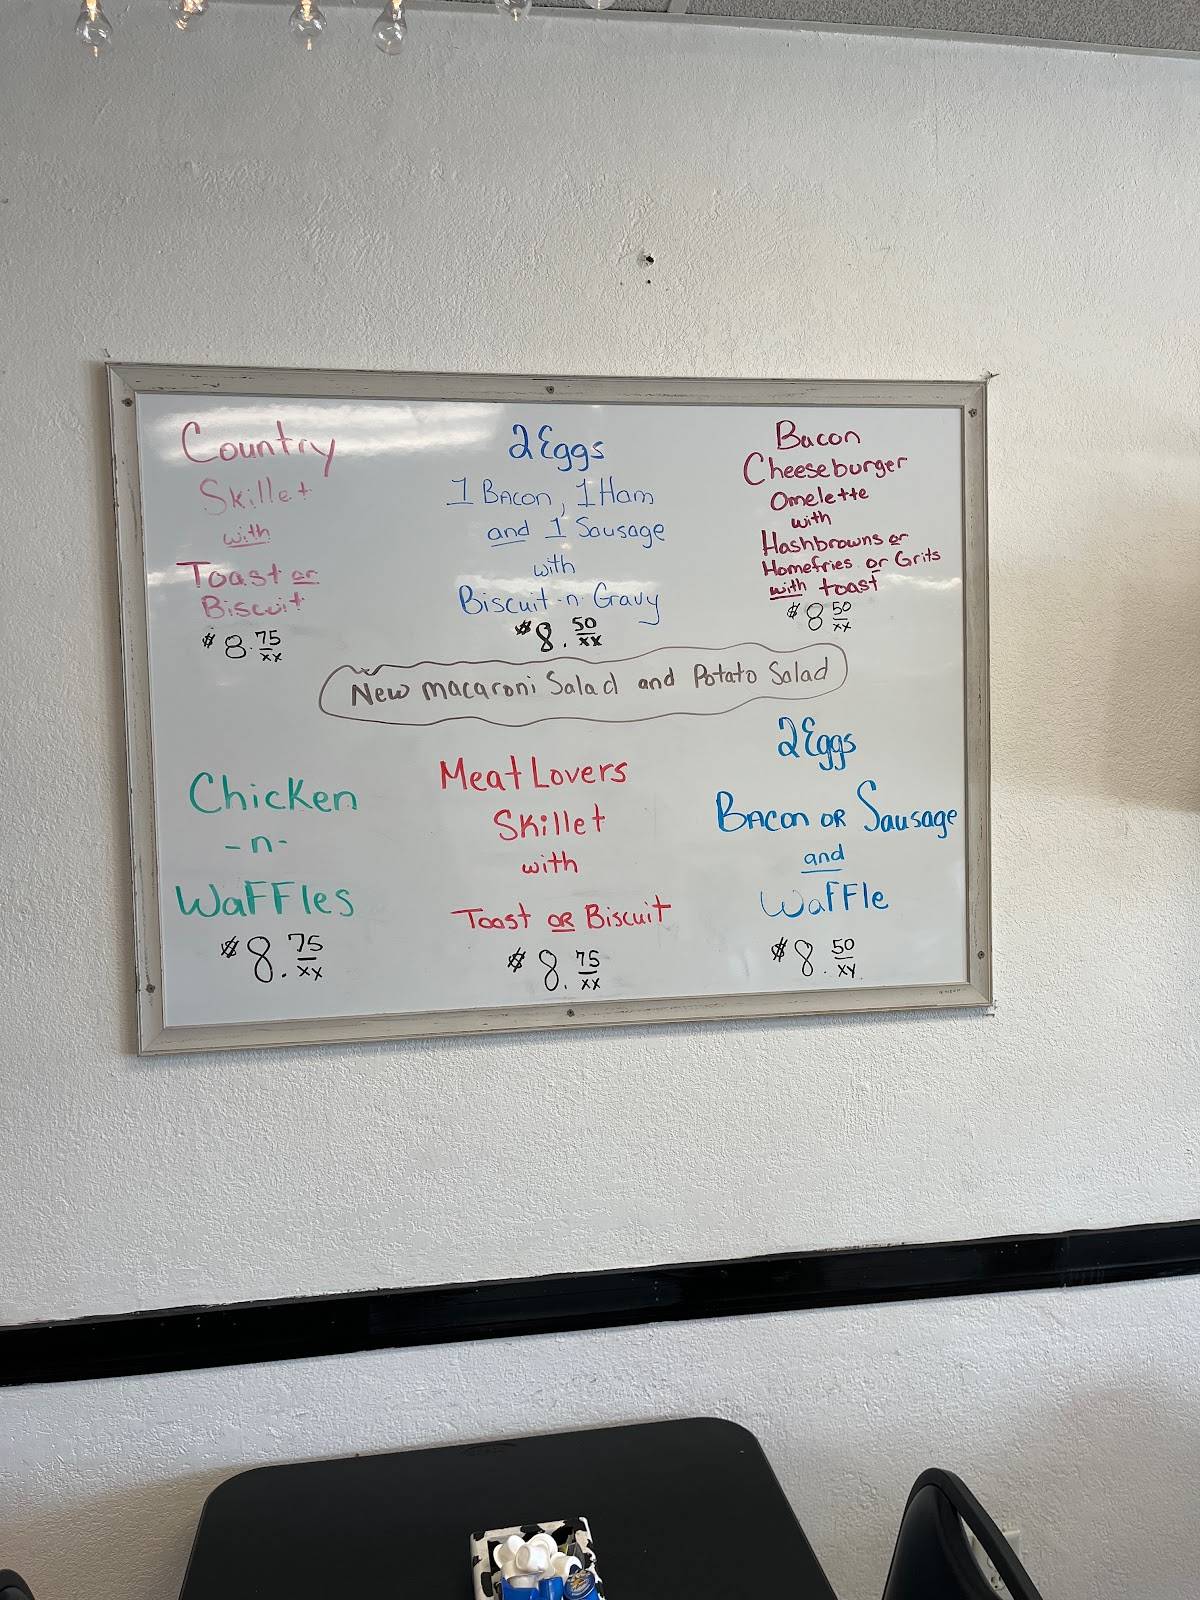 Country
Skillet
with
Toast or
Biscuit
$8.75/xx
2 Eggs
1 Bacon, 1 Ham
and 1 Sausage
with
Biscuit-n-Gravy
$8.50/xx
Bacon
Cheeseburger
Omelette
with
Hashbrowns or
Homefries or Grits
with toast
$8 50/xx
New macaroni Salad and Potato Salad
Chicken
-n-
Waffles
$8.75/xx
Meat Lovers
Skillet
with
Toast or Biscuit
$8.75/xx
2 Eggs
Bacon or Sausage
and
Waffle
$8.50/xy